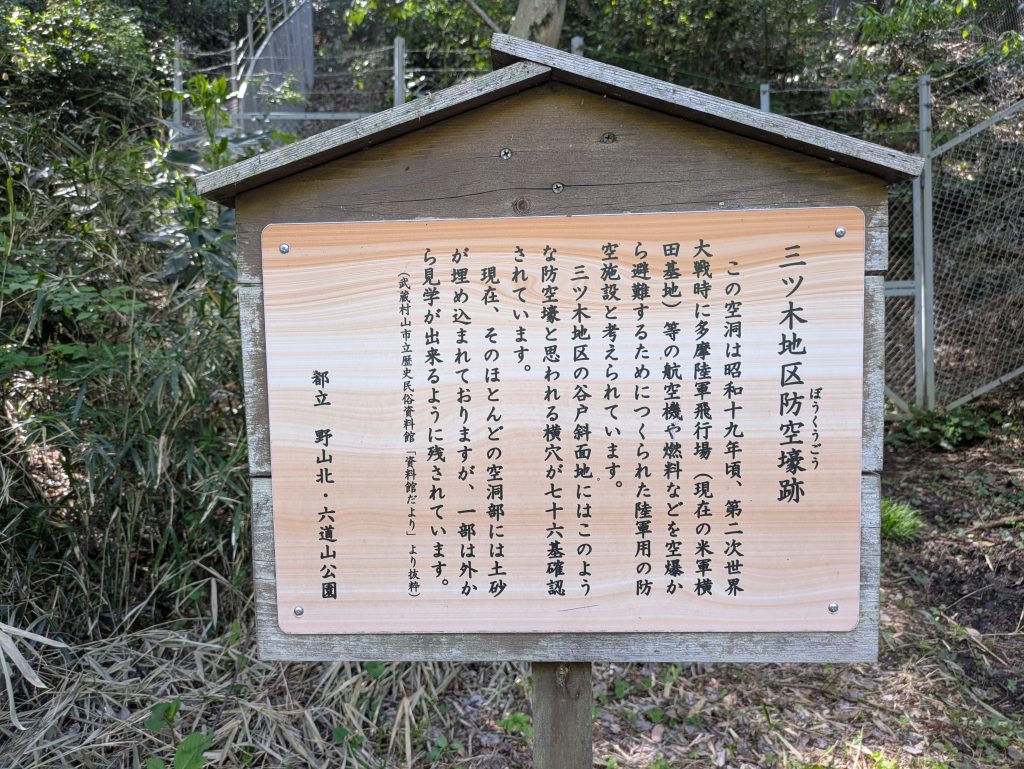 三ツ木地区防空壕跡
ぼうくうごう
この空洞は昭和十九年頃、第二次世界
大戦時に多摩陸軍飛行場（現在の米軍横
田基地）等の航空機や燃料などを空爆か
ら避難するためにつくられた陸軍用の防
空施設と考えられています。
三ツ木地区の谷戸斜面地にはこのよう
な防空壕と思われる横穴が七十六基確認
されています。
現在、そのほとんどの空洞部には土砂
が埋め込まれておりますが、一部は外か
ら見学が出来るように残されています。
（武蔵村山市立歴史民俗資料館「資料館だより」より抜粋）
都立　野山北・六道山公園